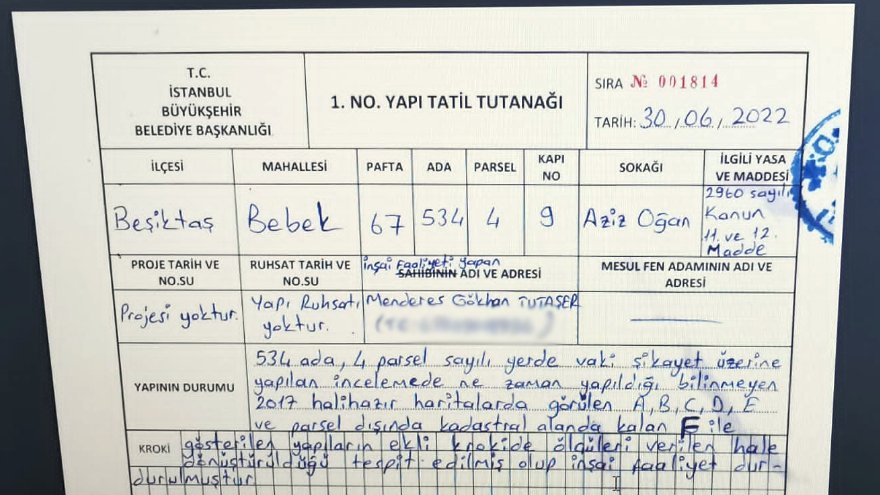 T.C.
İSTANBUL
BÜYÜKŞEHİR
BELEDİYE BAŞKANLIĞI
1. NO. YAPI TATİL TUTANAĞI
SIRA № 001814
TARİH: 30/06/2022
İLÇESİ MAHALLESİ PAFTA ADA PARSEL KAPI NO SOKAĞI İLGİLİ YASA VE MADDESİ
Beşiktaş Bebek 67 534 4 9 Aziz Oğan 2960 sayılı Kanun 11. ve 12. Madde
PROJE TARİH VE NO.SU RUHSAT TARİH VE NO.SU inşai faaliyeti yapan SAHİBİNİN ADI VE ADRESİ MESUL FEN ADAMININ ADI VE ADRESİ
Projesi yoktur. Yapı Ruhsatı yoktur. Menderes Gökhan TUTAŞER
YAPININ DURUMU
534 ada, 4 parsel sayılı yerde vaki şikayet üzerine
yapılan incelemede ne zaman yapıldığı bilinmeyen
2017 halihazır haritalarda görülen A, B, C, D, E
ve parsel dışında kadastral alanda kalan F ile
KROKİ gösterilen yapıların ekli krokide ölçüleri verilen hale
dönüştürüldüğü tespit edilmiş olup inşai faaliyet dur-
durulmuştur.